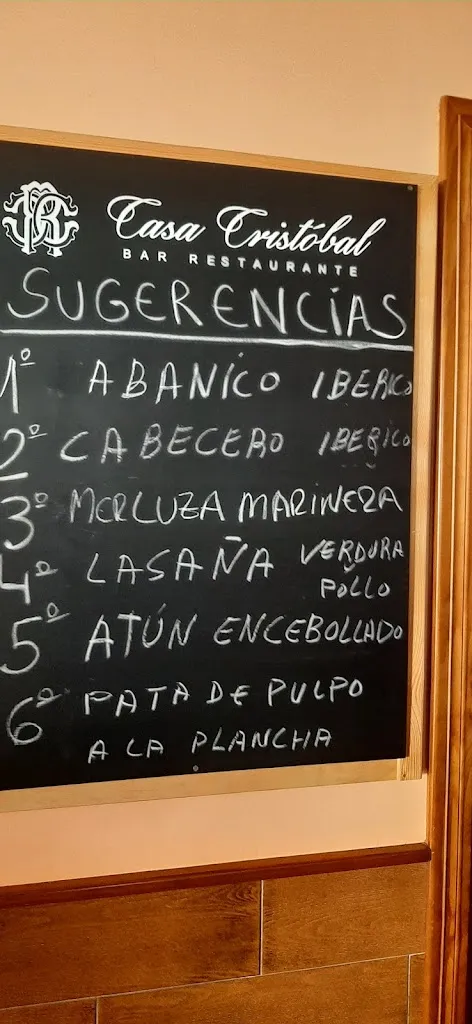 Casa Cristóbal
BAR RESTAURANTE
SUGERENCIAS
1º ABANICO IBERICO
2º CABECERO IBERICO
3º MERLUZA MARINERA
4º LASAÑA VERDURA
POLLO
5º ATÚN ENCEBOLLADO
6º PATA DE PULPO
A LA PLANCHA